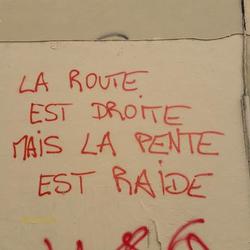 LA ROUTE
EST DROITE
MAIS LA PENTE
EST RAIDE